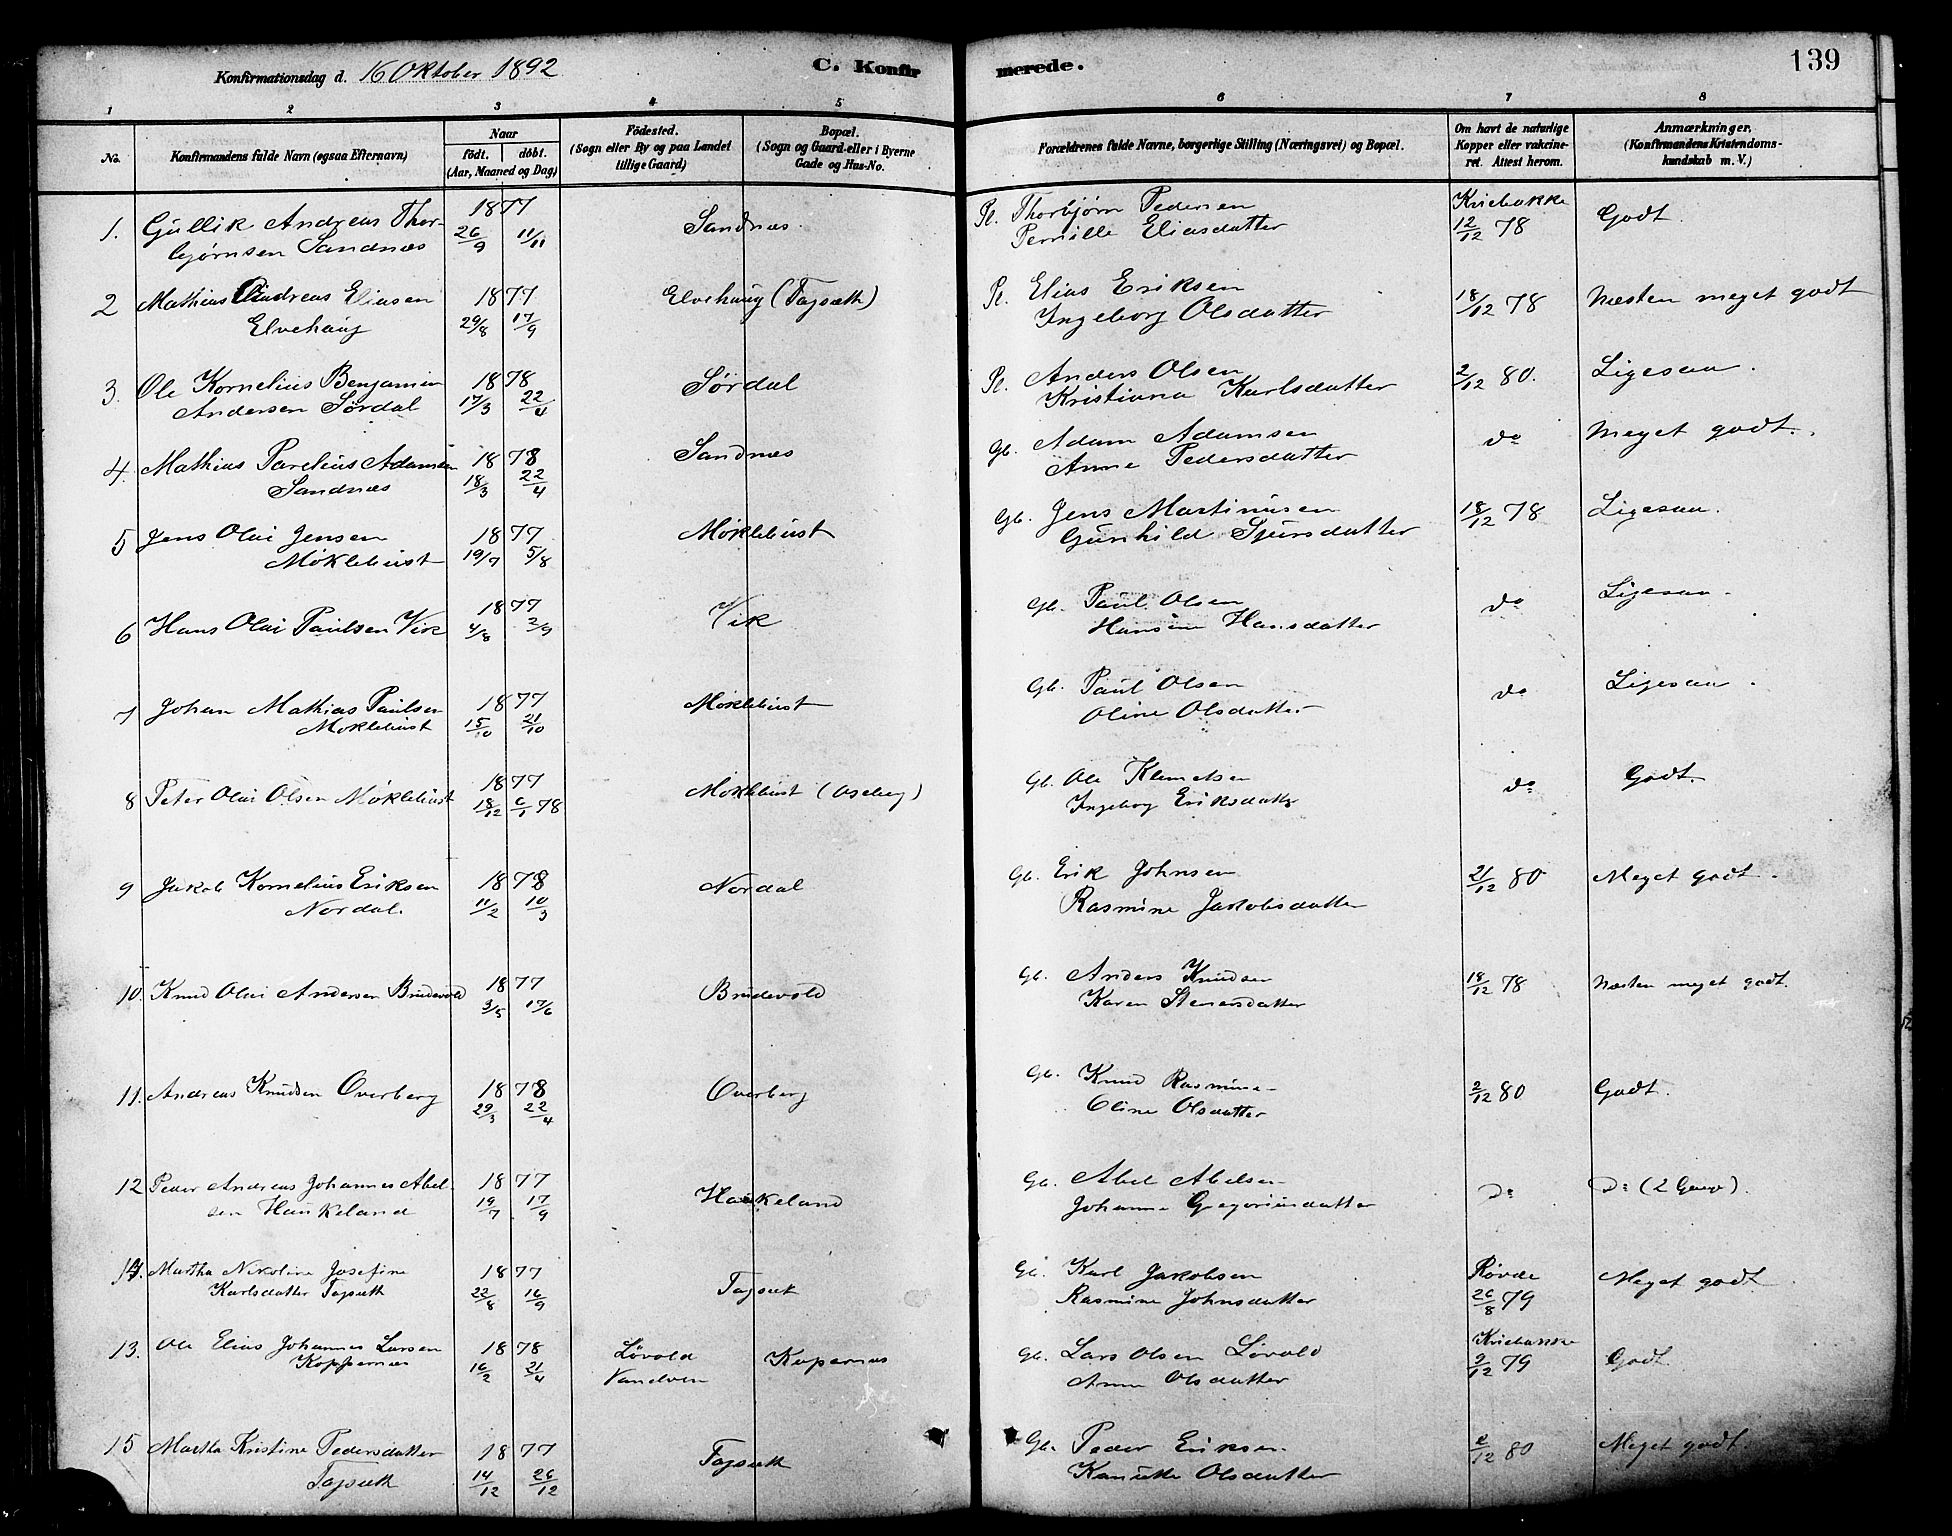 139
Konfirmationsdag d. 16 Oktober 1892
C. Konfirmerede.
1 2 3 4 5 6 7 8
No.
Konfirmandens fulde Navn (ogsaa Efternavn)
Naar
født. døbt.
(Aar, Maaned og Dag)
Fødested.
(Sogn eller By og paa Landet
tillige Gaard)
Bopæl.
(Sogn og Gaard eller i Byerne
Gade og Hus-No.
Forældrenes fulde Navne, borgerlige Stilling (Næringsvei) og Bopæl.
Om havt de naturlige
Kopper eller vakcine-
ret. Attest herom.
Anmærkninger.
(Konfirmandens Kristendoms-
kundskab m. V.)
1. Gullik Andreas Thor- 1877 Sandnæs. Pl. Thorbjørn Pedersen Godt.
bjørnsen Sandnæs 26/9 11/11 Pernille Eliasdatter 12/12 78
2 Mathias Andreas Eliasen 1877 Elvehaug (Tagsæth) Pl. Elias Eriksen 18/12 78 Næsten meget godt
Elvehaug 29/8 17/9 Ingeborg Olsdatter
3. Ole Kornelius Benjamin 1878 Sørdal Pl. Anders Olsen 2/12 80. Ligesaa.
Andersen Sørdal 17/3 22/4 Kristiana Karlsdatter
4. Mathias Parelius Adamsen 1878 Sandnæs Gb. Adam Adamsen do Meget godt.
Sandnæs 18/3 22/4 Anne Pedersdatter
5 Jens Olai Jensen 1877 Møklebust Gb. Jens Martinusen 18/12 78 Ligesaa.
Møklebust 19/7 5/8 Gunhild Sjursdatter
6 Hans Olai Paulsen Vik 1877 Vik Gb. Paul Olsen do Ligesaa.
4/8 2/9 Hansine Hansdatter
7 Johan Mathias Paulsen 1877 Møklebust Gb. Paul Olsen do Ligesaa.
Møklebust 15/10 21/10 Oline Olsdatter
8 Peter Olai Olsen Møklebust 1877 Møklebust (Aseberg) Gb. Ole Klemetsen do Godt.
18/12 6/1 78 Ingeborg Eriksdatter
9 Jakob Kornelius Eriksen 1878 Nordal Gb. Erik Johnsen 21/12 80 Meget godt.
Nordal. 11/2 10/3 Rasmine Jakobsdatter
10. Knud Olai Andersen Brudevold 1877 Brudevold Gb. Anders Knudsen 18/12 78 Næsten meget godt.
3/5 17/6 Karen Stenersdatter
11. Andreas Knudsen Overberg 1878 Overberg Gb. Knud Rasmus- 2/12 80 Godt.
29/3 22/4 Oline Olsdatter
12 Peder Andreas Johannes Abel- 1877 Haukeland Gb. Abel Abelsen do do (2 Gange).
sen Haukeland 19/7 17/9 Johanne Gregoriusdatter
14. Martha Nikoline Josefine 1877 Tagsæth Gb. Karl Jakobsen Røvde Meget godt
Karlsdatter Tagsæth 22/8 16/9 Rasmine Johnsdatter 26/8 79
13. Ole Elias Johannes Larsen 1878 Løvold Kopernæs Gb. Lars Olsen Løvold Godt
Koppernæs 16/2 21/4 Vandven Anne Olsdatter 9/12 79
15 Martha Kristine Pedersdatter 1877 Tagsæth Gb. Peder Eriksen 2/12 80 Meget godt.
Tagsæth 14/12 26/12 Olsdatter